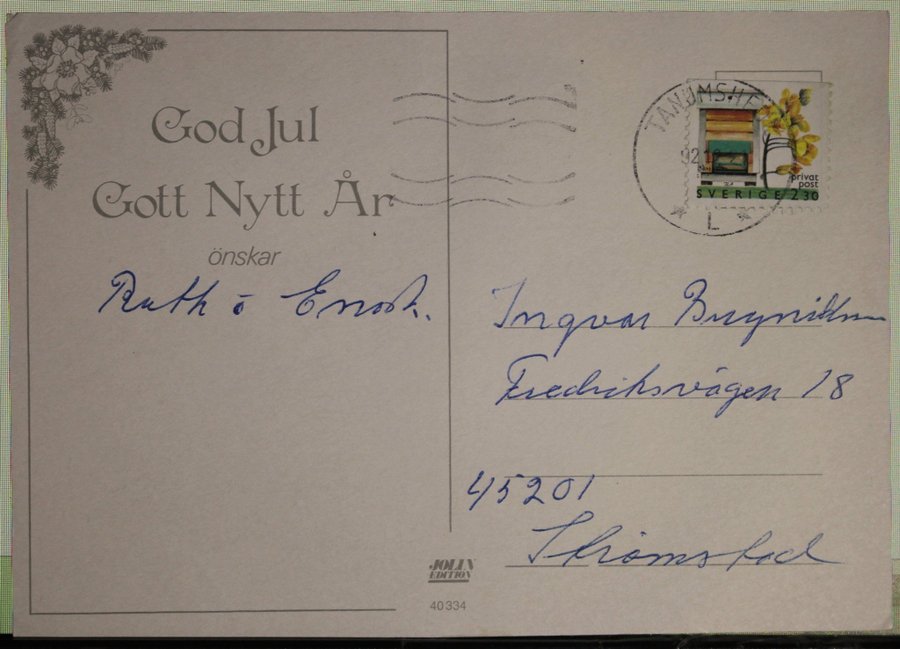 God Jul
Gott Nytt År
önskar
Ruth o Enock.
TANUMSHE
92
L
privat
post
SVERIGE 230
Ingvar
Fredriksvägen 18
45201
Strömstad
JOLIN
EDITION
40334